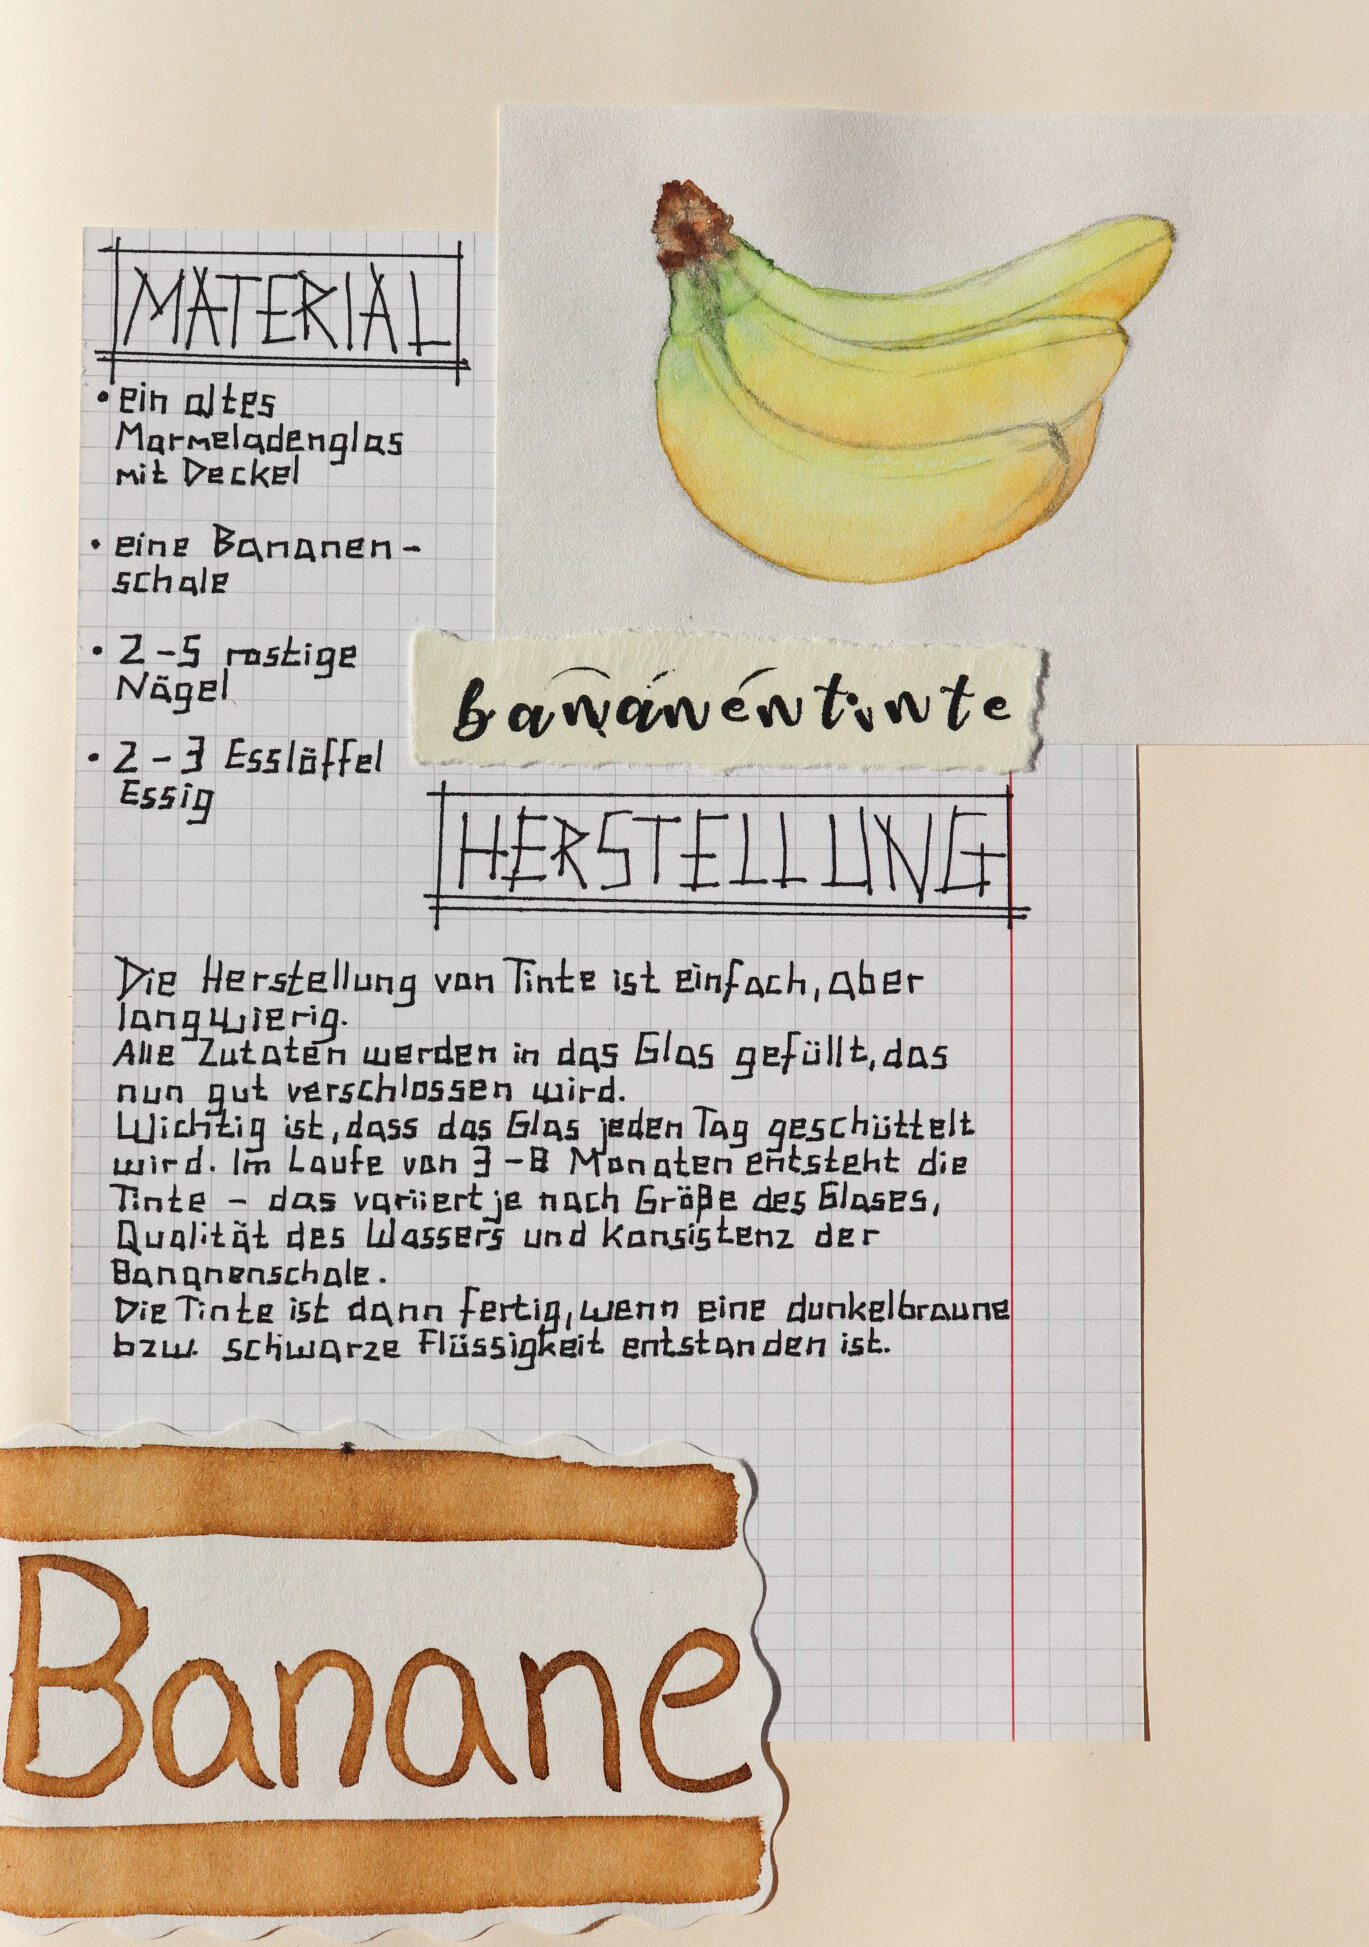 MATERIAL
• ein altes
Marmeladenglas
mit Deckel
• eine Bananen-
schale
• 2-5 rostige
Nägel
• 2-3 Esslöffel
Essig
bananentinte
HERSTELLUNG
Die Herstellung von Tinte ist einfach, aber
langwierig.
Alle Zutaten werden in das Glas gefüllt, das
nun gut verschlossen wird.
Wichtig ist, dass das Glas jeden Tag geschüttelt
wird. Im Laufe von 3-8 Monaten entsteht die
Tinte - das variiert je nach Größe des Glases,
Qualität des Wassers und Konsistenz der
Bananenschale.
Die Tinte ist dann fertig, wenn eine dunkelbraune
bzw. schwarze Flüssigkeit entstanden ist.
Banane